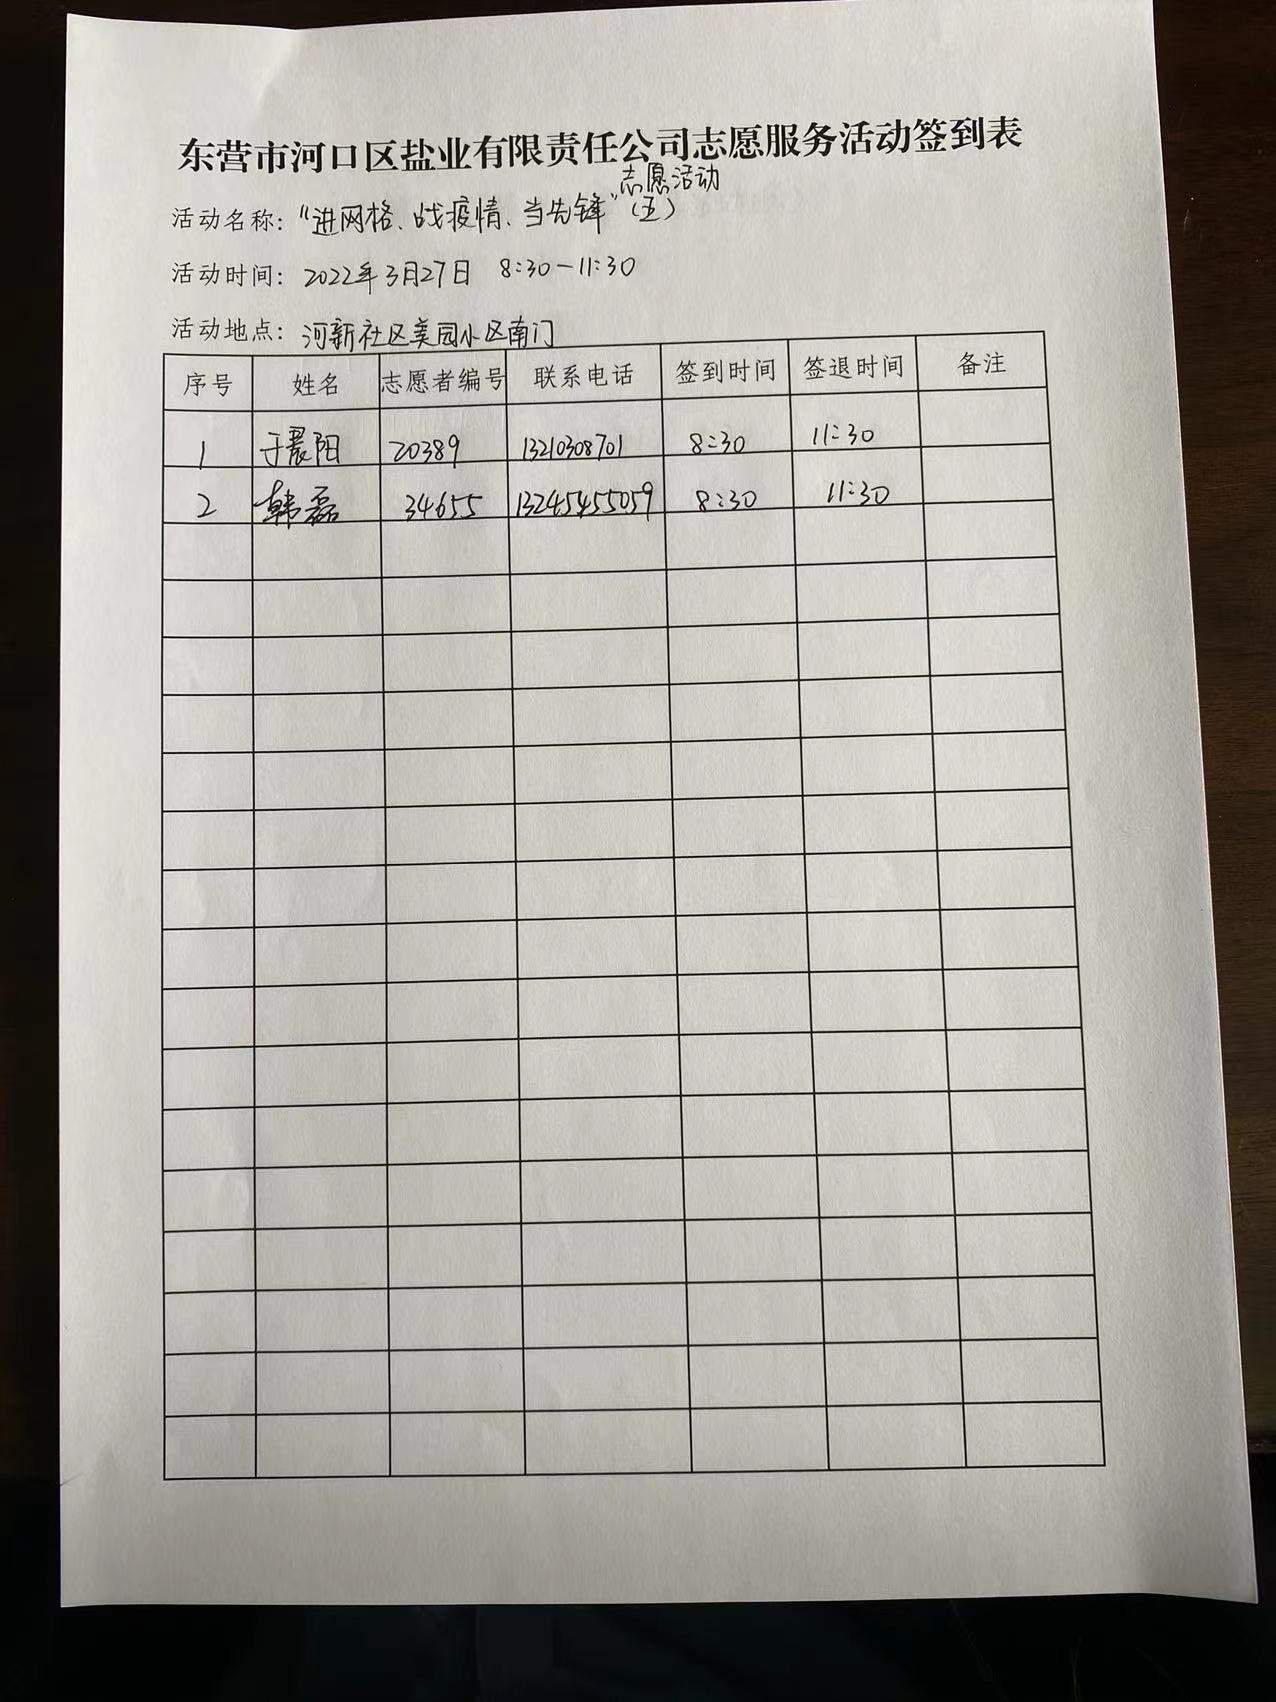 东营市河口区盐业有限责任公司志愿服务活动签到表
志愿活动
活动名称：“进网格、战疫情、当先锋”（五）
活动时间：2022年3月27日 8:30－11:30
活动地点：河新社区美园小区南门
序号 姓名 志愿者编号 联系电话 签到时间 签退时间 备注
1 于晨阳 20389 13210308701 8:30 11:30
2 韩磊 34655 13245455059 8:30 11:30